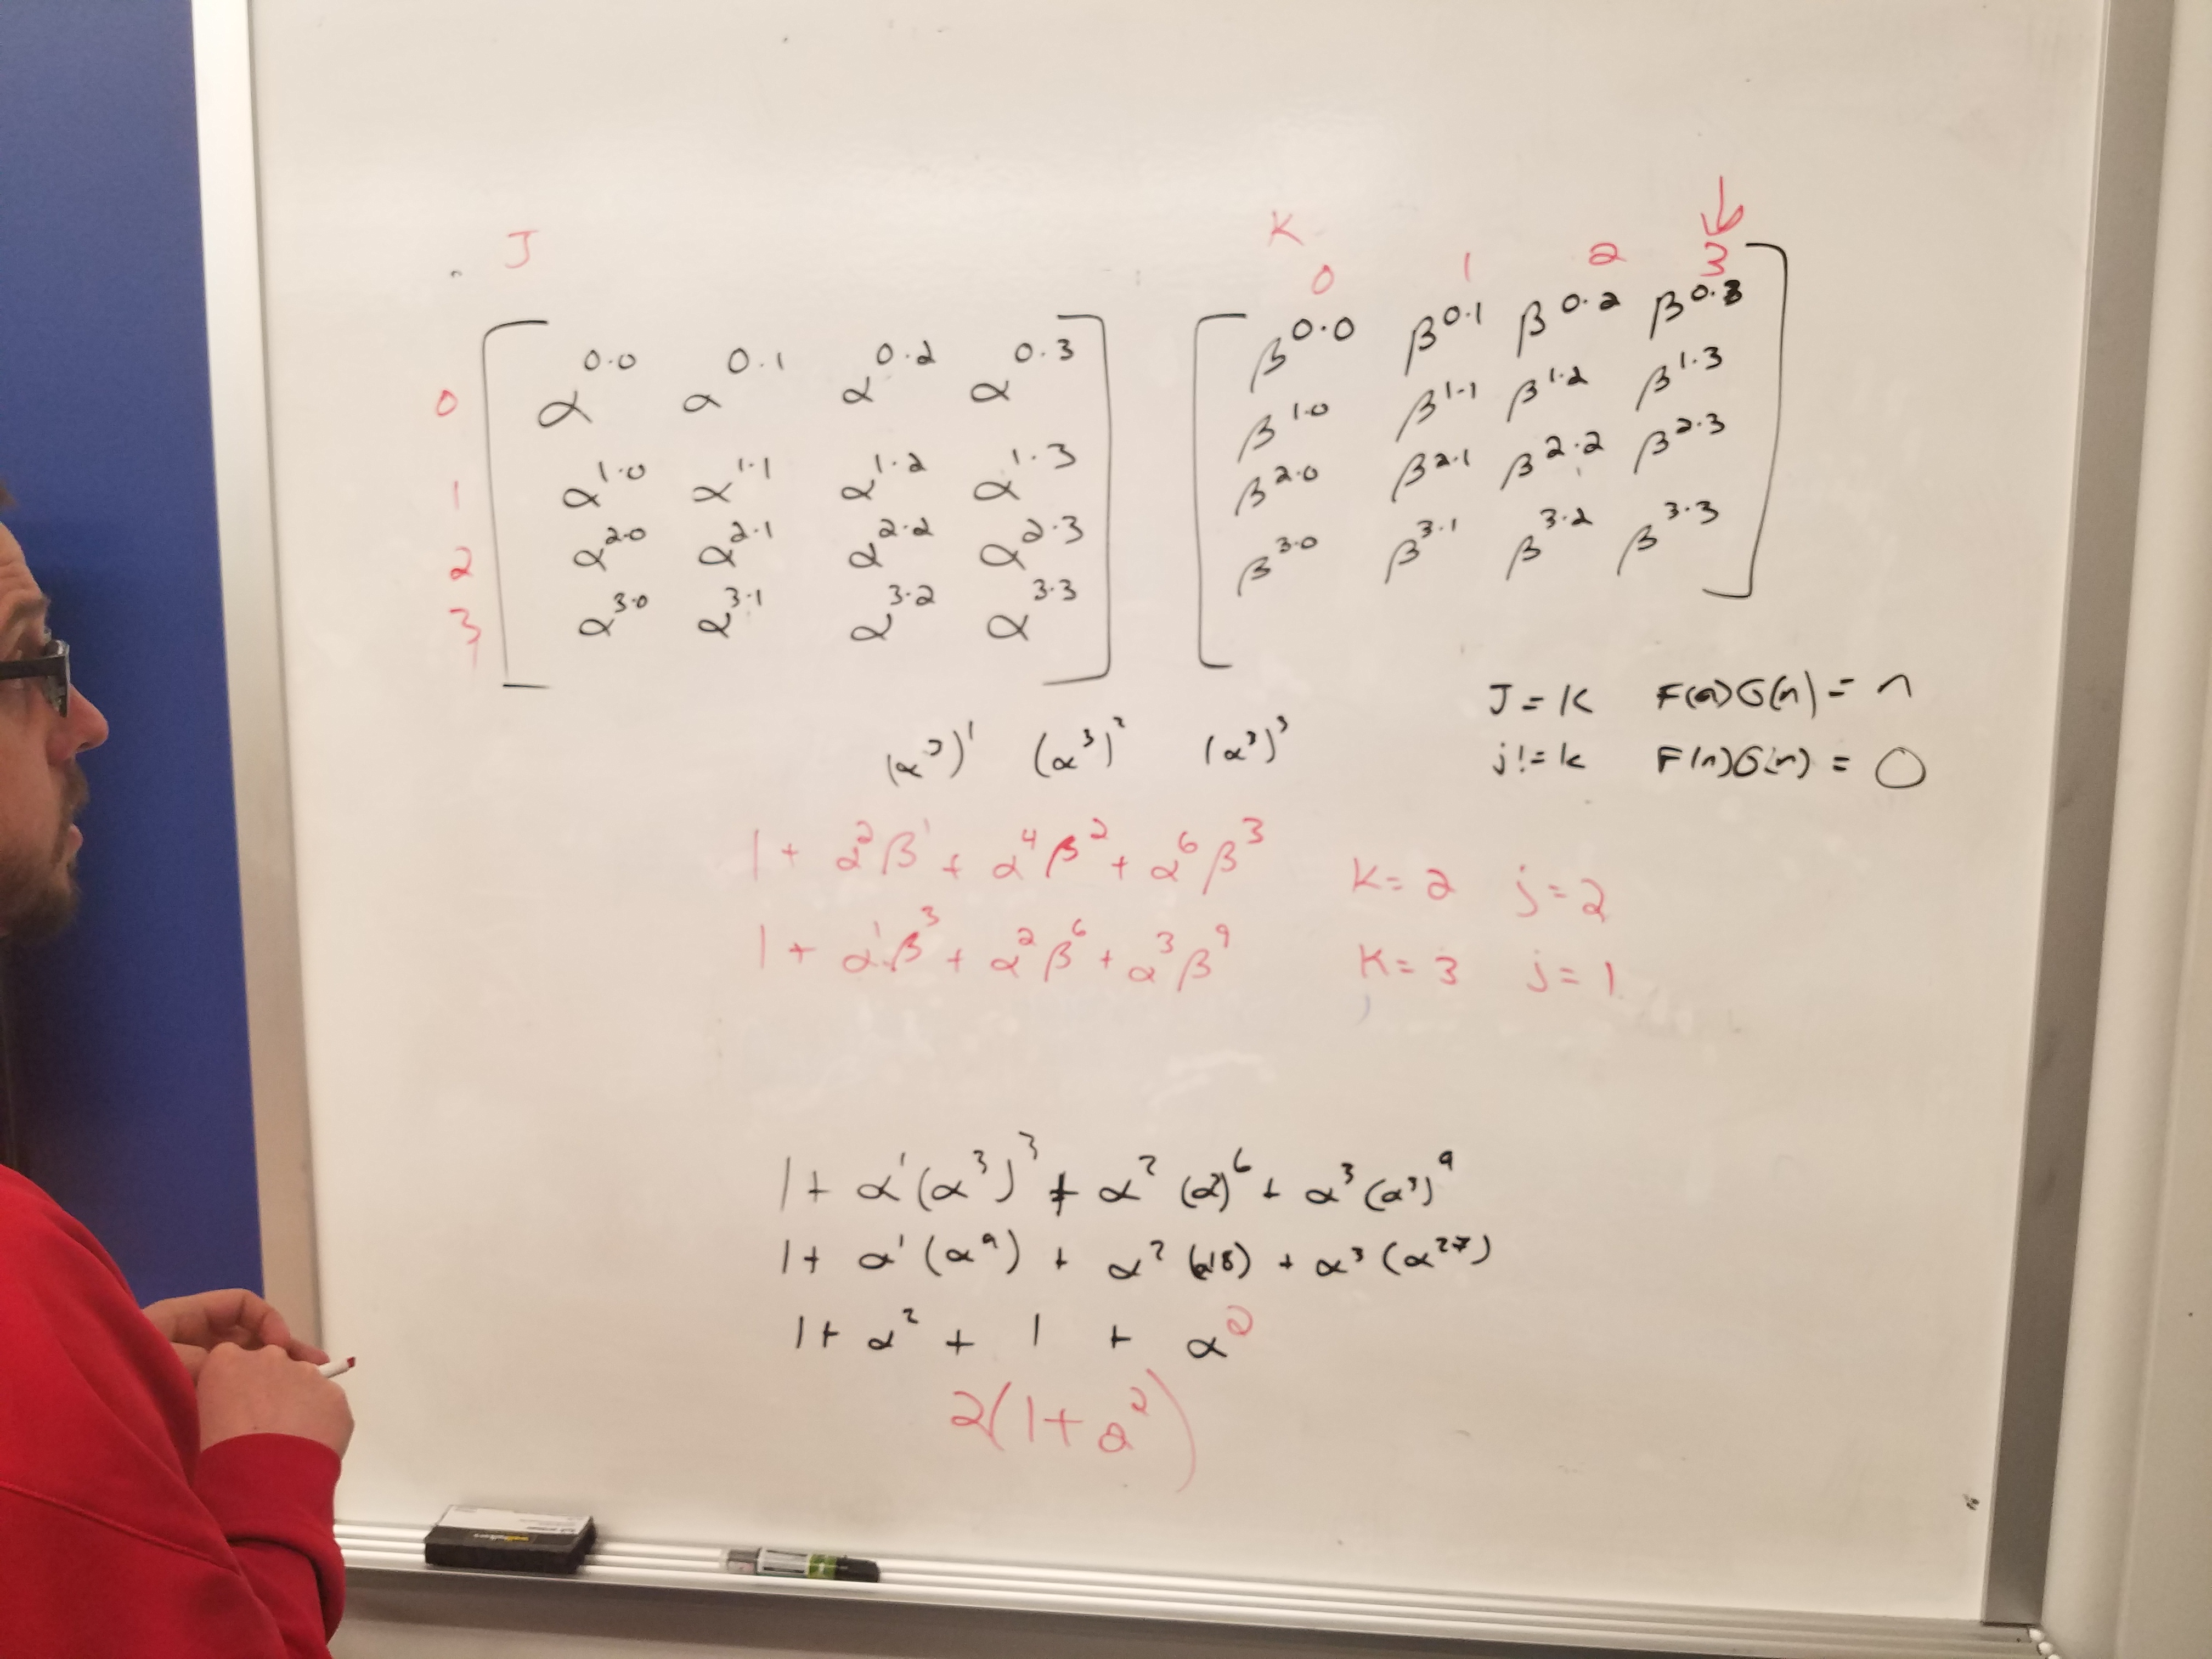 J
K
0 1 2 3
0 α^0·0 α^0·1 α^0·2 α^0·3
1 α^1·0 α^1·1 α^1·2 α^1·3
2 α^2·0 α^2·1 α^2·2 α^2·3
3 α^3·0 α^3·1 α^3·2 α^3·3
β^0·0 β^0·1 β^0·2 β^0·3
β^1·0 β^1·1 β^1·2 β^1·3
β^2·0 β^2·1 β^2·2 β^2·3
β^3·0 β^3·1 β^3·2 β^3·3
J = K F(n)G(n) = n
j != k F(n)G(n) = 0
(α^3)^1 (α^3)^2 (α^3)^3
1 + α^2β^1 + α^4β^2 + α^6β^3 K = 2 j = 2
1 + α^1β^3 + α^2β^6 + α^3β^9 K = 3 j = 1
1 + α^1(α^3)^3 + α^2(α^3)^6 + α^3(α^3)^9
1 + α^1(α^9) + α^2(α^18) + α^3(α^27)
1 + α^2 + 1 + α^2
2(1 + α^2)